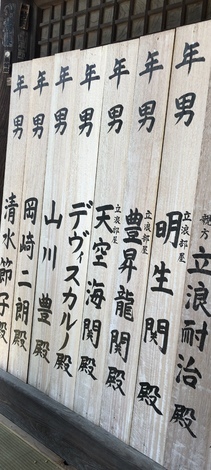 年男 親方 立浪部屋 立浪耐治殿
年男 立浪部屋 明生関殿
年男 立浪部屋 豊昇龍関殿
年男 立浪部屋 天空海関殿
年男 デヴィスカルノ殿
年男 山川豊殿
年男 岡崎二朗殿
年男 清水節子殿